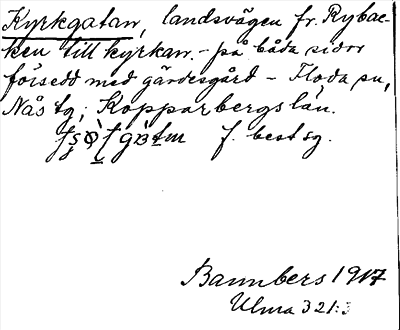 Kyrkgatan, landsvägen fr. Rybac-
ken till kyrkan. - på båda sidor
försedd med gärdesgård - Floda sn,
Nås tg; Kopparbergs län.
f. best sg.
Bannbers 1917
Ulma 321:3